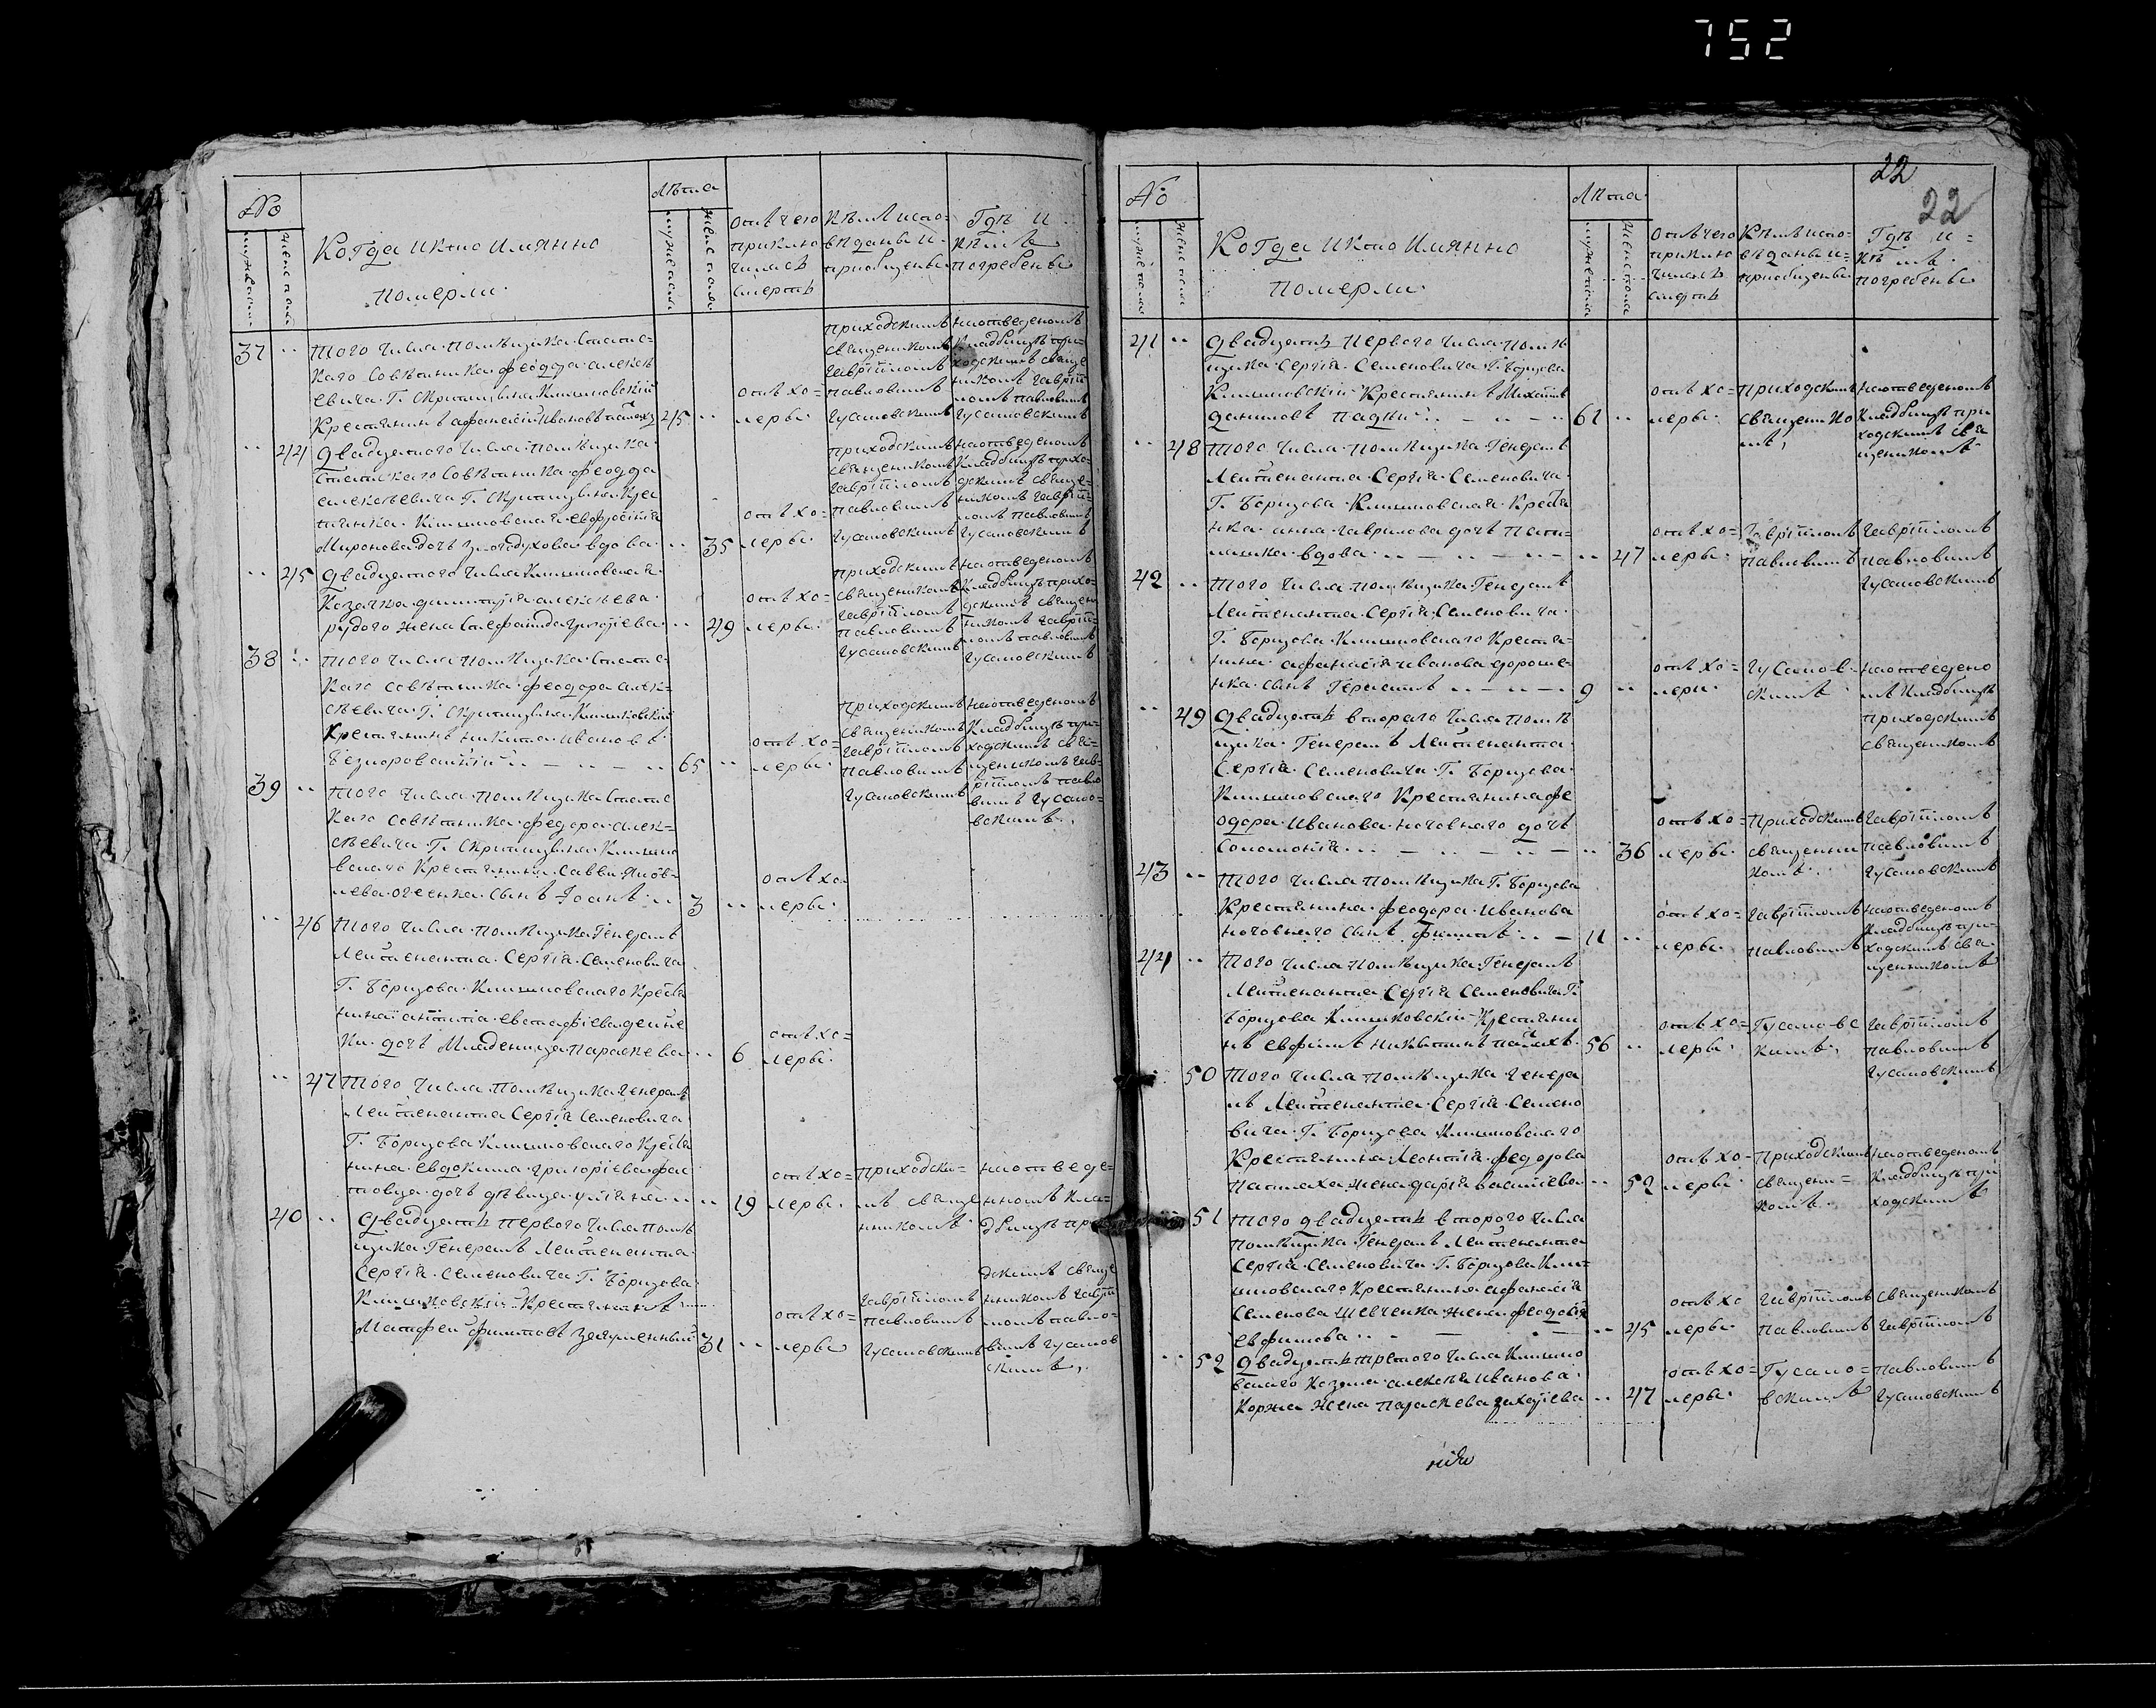 752
№
Лѣта
мужеска
женска
Когда и кто имянно
померли
мужеска
женска
отъ чего
приклю
чилась
смерть
Кѣмъ испо=
вѣданы и
приобщены
Гдѣ и
кѣмъ
погребены
37
того числа помѣщика статс=
каго совѣтника феодора алексѣ
евича Г. Скрипицына Климовскій
Крестьянинъ афанасій Ивановъ
45
отъ хо=
леры
приходскимъ
священикомъ
Гавріиломъ
павловымъ
Гусаковскимъ
на отведеномъ
кладбищѣ при=
ходскимъ свяще
никомъ Гаврі
иломъ павловымъ
Гусаковскимъ
44
двадцатого числа помѣщика
статскаго совѣтника феодора
алексѣевича Г. Скрипицына Крес
тьянка Климовская евфросинія
Миронова дочь вдова
35
отъ хо=
леры
приходскимъ
священикомъ
Гавріиломъ
павловымъ
Гусаковскимъ
на отведеномъ
кладбищѣ прихо=
дскимъ свяще=
никомъ Гаврі=
иломъ павловымъ
Гусаковскимъ
45
двадцатого числа Климовская
Козачка димитрія алексѣева
рудого жена Стефанида григоріева
49
отъ хо=
леры
приходскимъ
священикомъ
Гавріиломъ
павловымъ
Гусаковскимъ
на отведеномъ
кладбищѣ прихо=
дскимъ священ
никомъ Гаврі=
иломъ павловымъ
Гусаковскимъ
38
того числа помѣщика статс=
каго совѣтника феодора алек=
сѣевича Г. Скрипицына Климовскій
Крестьянинъ никита Ивановъ
65
отъ хо=
леры
приходскимъ
священикомъ
Гавріиломъ
павловымъ
Гусаковскимъ
на отведеномъ
кладбищѣ при=
ходскимъ свя=
щеникомъ Гав=
ріиломъ павло
вымъ Гусако=
вскимъ
39
того числа помѣщика статс
каго совѣтника феодора алек=
сѣевича Г. Скрипицына Климо
вскаго Крестьянина Саввы Яков=
лева сынъ Іоанъ
3
отъ хо
леры
46
того числа помѣщика Генералъ
Лейтенанта Сергія Семеновича
Г. Борщова Климовскаго Крестья
нина евстафіева
дочь Младеница параскева
6
отъ хо=
леры
47
того числа помѣщика генералъ
Лейтенанта Сергія Семеновича
Г. Борщова Климовскаго Крестья
нина Евдокима григоріева
дочь дѣвица уліяна
19
отъ хо=
леры
приходски=
мъ свяще
нникомъ
на отведе=
нномъ кла=
дбищѣ при
40
двадцать первого числа помѣ
щика Генералъ Лейтенанта
Сергія Семеновича Г. Борщова
Климовскій Крестьянинъ
Матфей филиповъ
31
отъ хо=
леры
Гавріиломъ
павловымъ
Гусаковскимъ
дскимъ свяще
нникомъ Гаврі
иломъ павло=
вымъ Гусаков
скимъ
22
22
№
Лѣта
мужеска
женска
Когда и кто имянно
померли
мужеска
женска
отъ чего
приклю
чилась
смерть
Кѣмъ испо=
вѣданы и=
приобщены
Гдѣ и=
кѣмъ
погребены
41
двадцать первого числа помѣ
щика Сергія Семеновича Г. Борщова
Климовскій Крестьянинъ Михаилъ
даниловъ
61
отъ хо=
леры
приходскимъ
священико
мъ
на отведеномъ
кладбищѣ при
ходскимъ свя
щеникомъ
48
того числа помѣщика Генералъ
Лейтенанта Сергія Семеновича
Г. Борщова Климовская Крестья
нка анна гаврилова дочь
вдова
47
отъ хо=
леры
Гавріиломъ
павловымъ
Гавріиломъ
павловымъ
Гусаковскимъ
42
того числа помѣщика Генералъ
Лейтенанта Сергія Семеновича
Г. Борщова Климовскаго Крестья=
нина афанасія иванова дороше=
нка сынъ Герасимъ
9
отъ хо=
леры
Гусаков=
скимъ
на отведено
мъ кладбищѣ
приходскимъ
священикомъ
49
двадцать второго числа помѣ
щика Генералъ Лейтенанта
Сергія Семеновича Г. Борщова
Климовскаго Крестьянина фе
одора Иванова дочь
Соломонія
36
отъ хо=
леры
приходскимъ
священни
комъ
Гавріиломъ
павловымъ
Гусаковскимъ
43
того числа помѣщика Г. Борщова
Крестьянина феодора Иванова
сынъ филипъ
11
отъ хо=
леры
Гавріиломъ
павловымъ
на отведеномъ
кладбищѣ при=
ходскимъ свя
щенникомъ
44
того числа помѣщика Генералъ
Лейтенанта Сергія Семеновича Г.
Борщова Климовскій Крестьяни
нъ евфимъ никитинъ
56
отъ хо=
леры
Гусаковс
кимъ
Гавріиломъ
павловымъ
Гусаковскимъ
50
того числа помѣщика генера
лъ Лейтенанта Сергія Семено
вича Г. Борщова Климовскаго
Крестьянина Леонтія федорова
жена дарія василіева
52
отъ хо=
леры
приходскимъ
священи=
комъ
на отведеномъ
кладбищѣ при
ходскимъ
51
того двадцать второго числа
помѣщика Генералъ Лейтенанта
Сергія Семеновича Г. Борщова Кли=
мовскаго Крестьянина афанасія
Семенова шевченка жена феодосія
евфимова
45
отъ хо
леры
Гавріиломъ
павловымъ
священикомъ
Гавріиломъ
52
двадцать третого числа Климо
вскаго Козака алексѣя Иванова
Коржа жена параскева захаріева
47
отъ хо=
леры
Гусако=
вскимъ
павловымъ
Гусаковскимъ